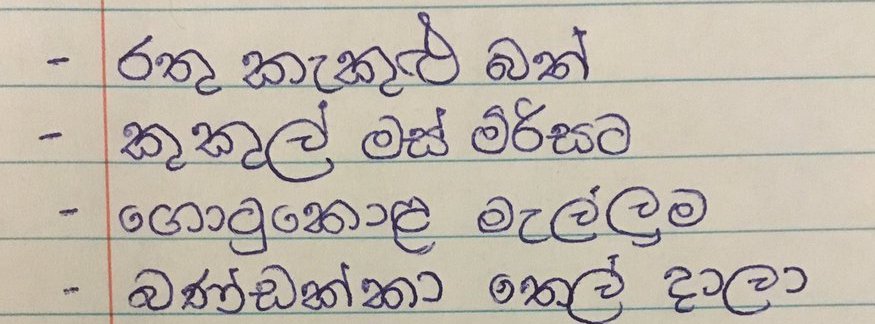 - රතු කැකුළු බත්
- කුකුල් මස් මිරිසට
- ගොටුකොළ මැල්ලුම
- බණ්ඩක්කා තෙල් දාලා